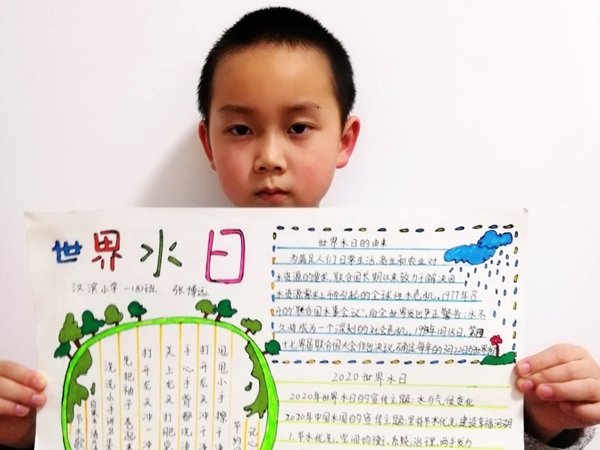 世界水日
汉滨小学 一(8)班 张博远
世界水日的由来
为满足人们日常生活、商业和农业对
水资源的需求,联合国长期以来致力于解决因
水资源需求上升引起的全球性水危机。1977年召
开的“联合国水事会议”,向全世界发出严正警告:水不
久将成为一个深刻的社会危机。1993年1月18日,第四
十七届联合国大会作出决议,确定每年的3月22日为世界水日
2020世界水日
2020年世界水日的宣传主题:水与气候变化
2020年中国水周的宣传主题:坚持节水优先,建设幸福河湖
1.节水优先、空间均衡、系统治理、两手发力
节水歌
洗洗小手讲卫
先把袖子卷起
打开龙头冲一冲
关上龙头打肥
手心手背都洗
打开龙头冲干
甩甩小手擦干
节约 记心